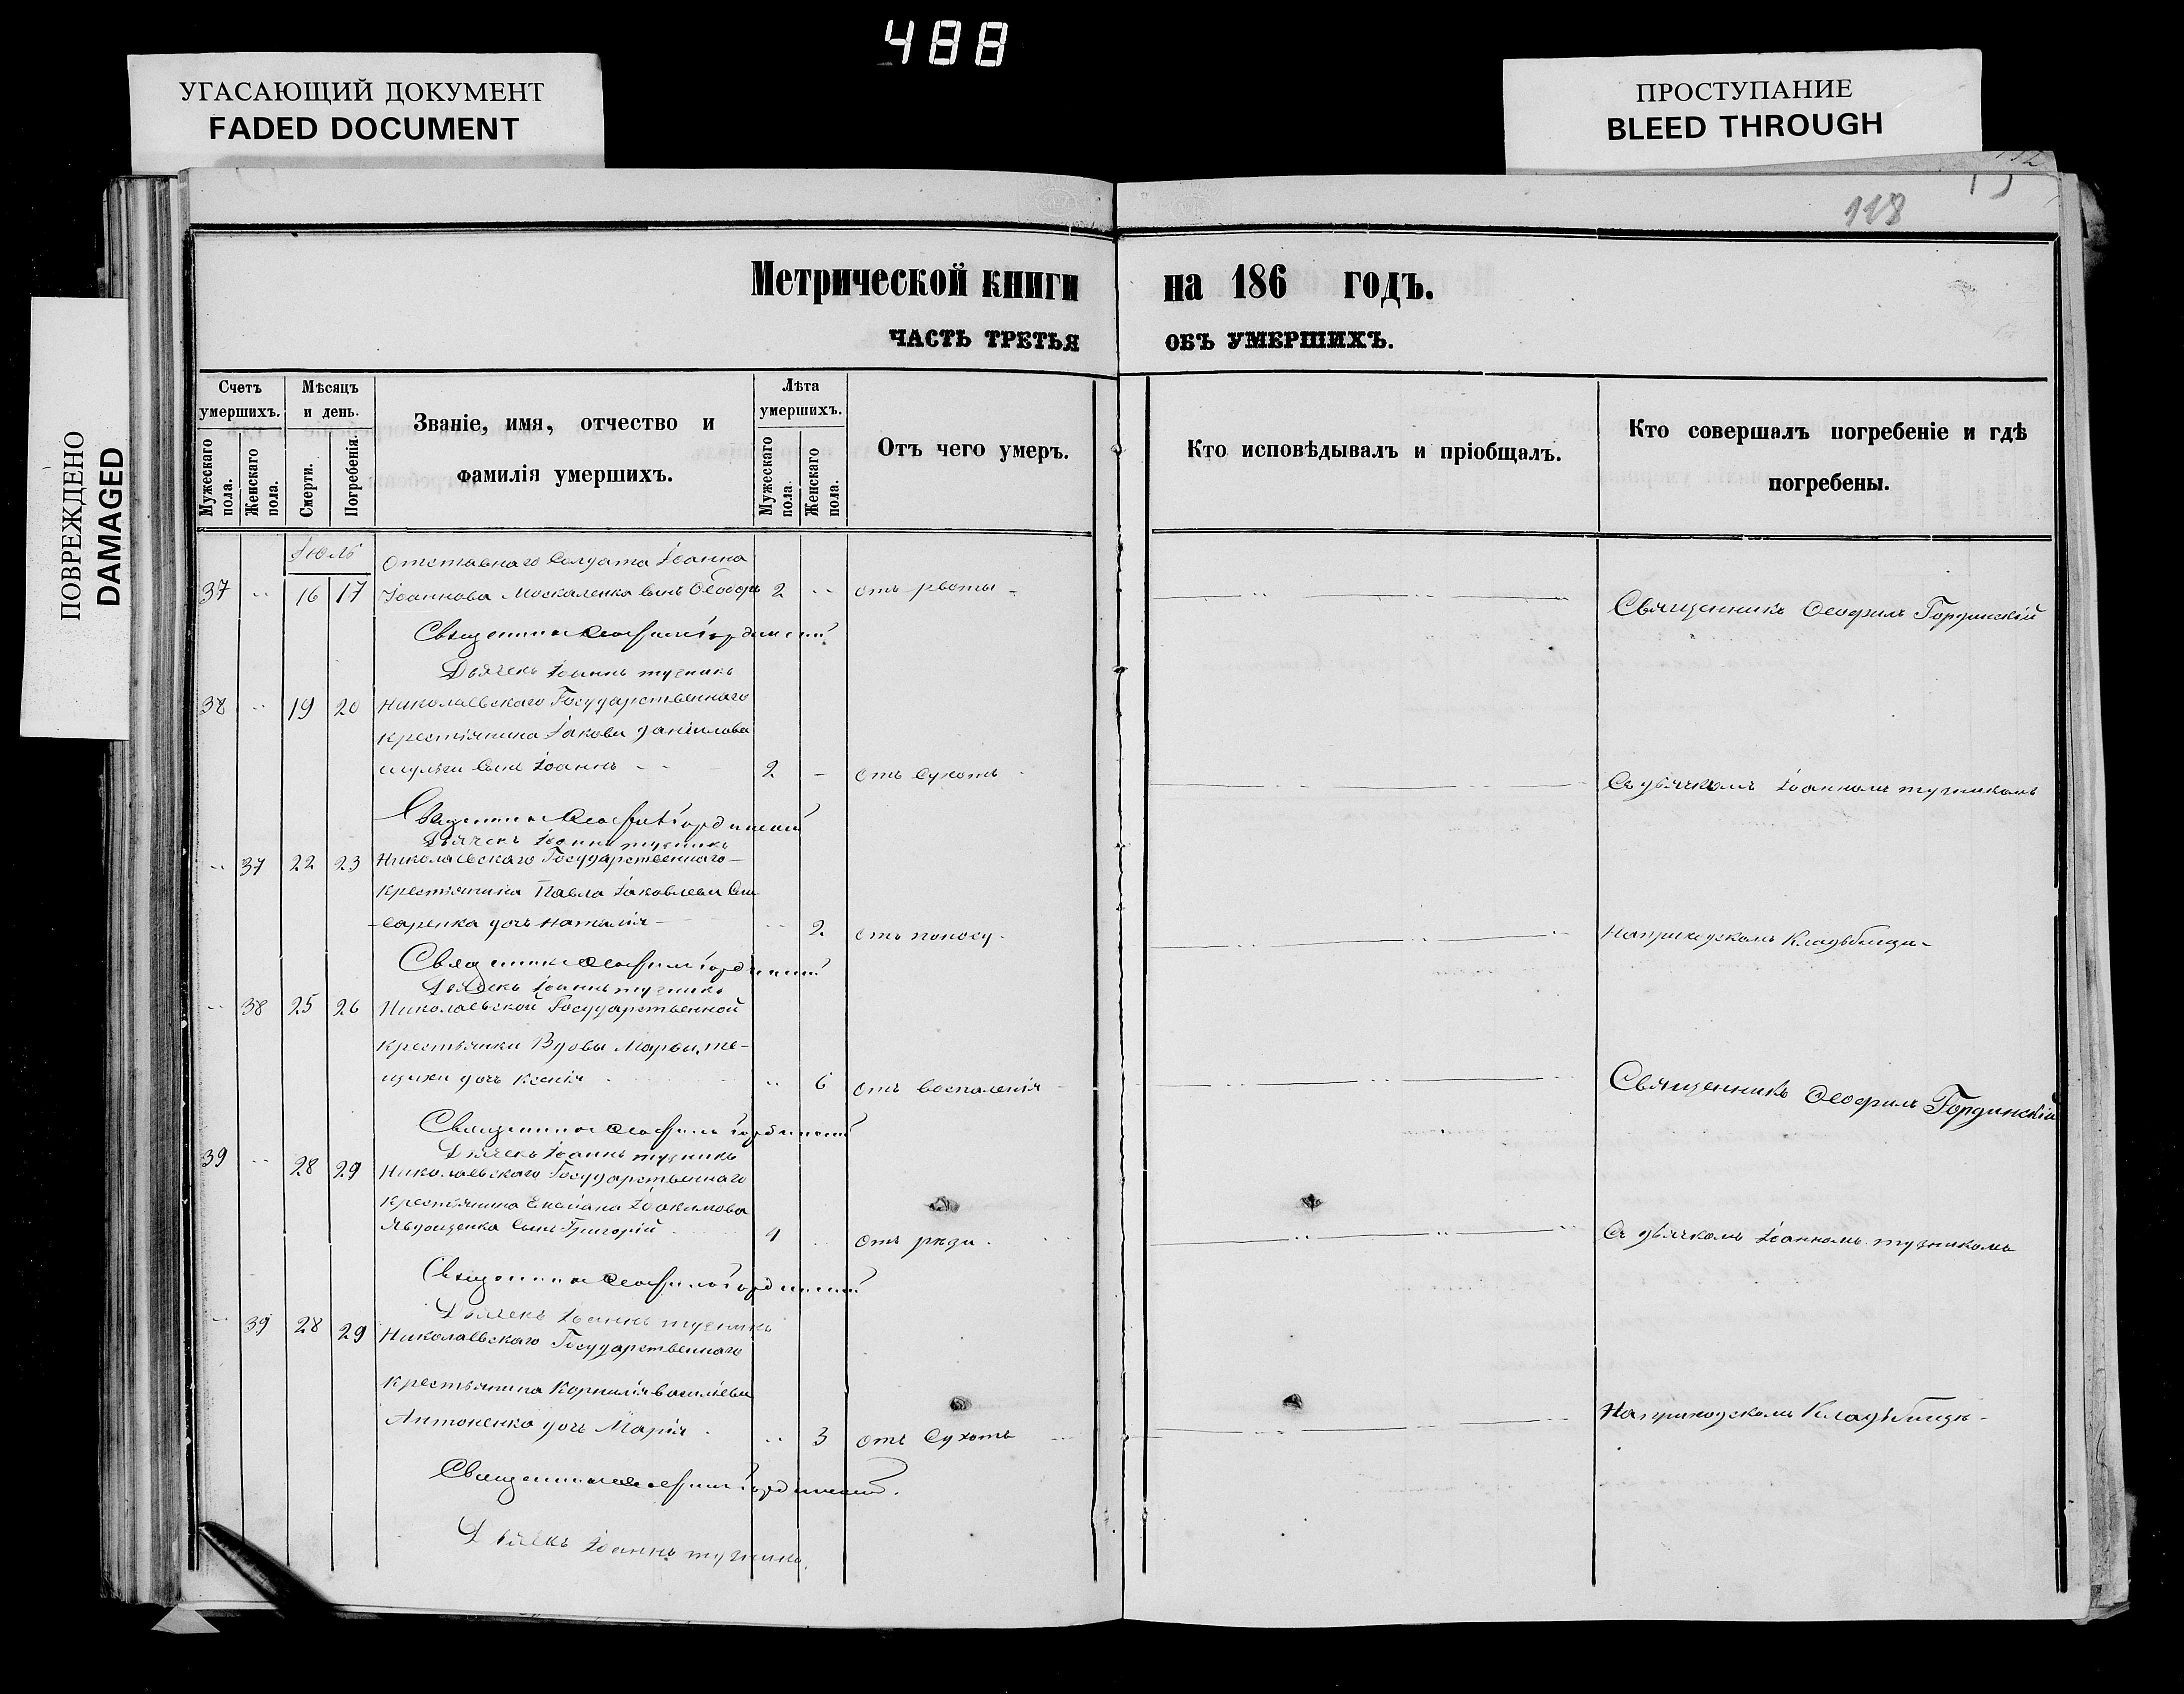 488
УГАСАЮЩИЙ ДОКУМЕНТ
FADED DOCUMENT
ПРОСТУПАНИЕ
BLEED THROUGH
ПОВРЕЖДЕНО
DAMAGED
118
Метрической книги на 186 годъ.
ЧАСТЬ ТРЕТЬЯ ОБЪ УМЕРШИХЪ.
Счетъ умершихъ.
Мужескаго пола.
Женскаго пола.
Мѣсяцъ и день.
Смерти.
Погребенія.
Званіе, имя, отчество и
фамилія умершихъ.
Лѣта умершихъ.
Мужескаго пола.
Женскаго пола.
Отъ чего умеръ.
Кто исповѣдывалъ и пріобщалъ.
Кто совершалъ погребеніе и гдѣ
погребены.
Іюль
Отставнаго Солдата Іоанна
37 16 17 Іоаннова Москаленка сынъ Ѳеодоръ 2 отъ рвоты
Священникъ Ѳеофилъ Гординскій
Священникъ Ѳеофилъ Гординскій
Дьячекъ Іоаннъ
38 19 20 Николаевскаго Государственнаго
крестьянина Іакова Даніилова
сынъ Іоаннъ 2 отъ Сухотъ
Съ дьячкомъ Іоанномъ
Священникъ Ѳеофилъ Гординскій
Дьячекъ Іоаннъ
37 22 23 Николаевскаго Государственнаго
крестьянина Павла Іаковлева
саренка дочь Наталія 2 отъ поносу
На приходскомъ Кладбищѣ
Священникъ Ѳеофилъ Гординскій
Дьячекъ Іоаннъ
38 25 26 Николаевской Государственной
крестьянки Вдовы Марѳы
дочь Ксенія 6 отъ воспаленія
Священникъ Ѳеофилъ Гординскій
Священникъ Ѳеофилъ Гординскій
Дьячекъ Іоаннъ
39 28 29 Николаевскаго Государственнаго
крестьянина Іоакимова
Явдощенка сынъ Григорій 1 отъ
Съ дьячкомъ Іоанномъ
Священникъ Ѳеофилъ Гординскій
Дьячекъ Іоаннъ
39 28 29 Николаевскаго Государственнаго
крестьянина Корнилія Василіева
Антоненка дочь Марія 3 отъ Сухотъ
На приходскомъ Кладбищѣ
Священникъ Ѳеофилъ Гординскій.
Дьячекъ Іоаннъ